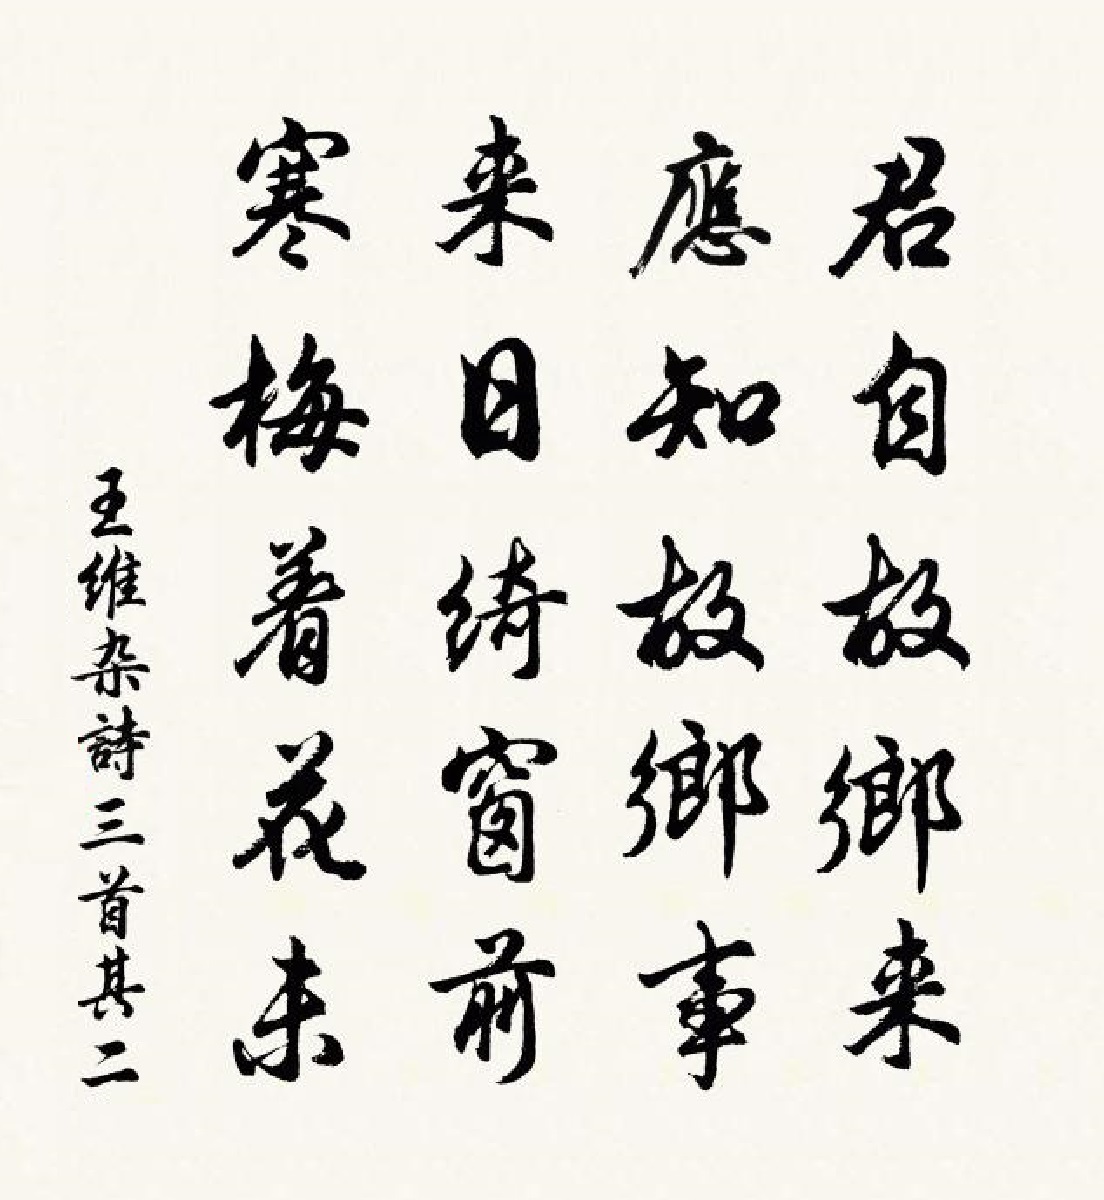 君自故鄉来
應知故鄉事
来日绮窗前
寒梅着花未
王维杂詩三首其二